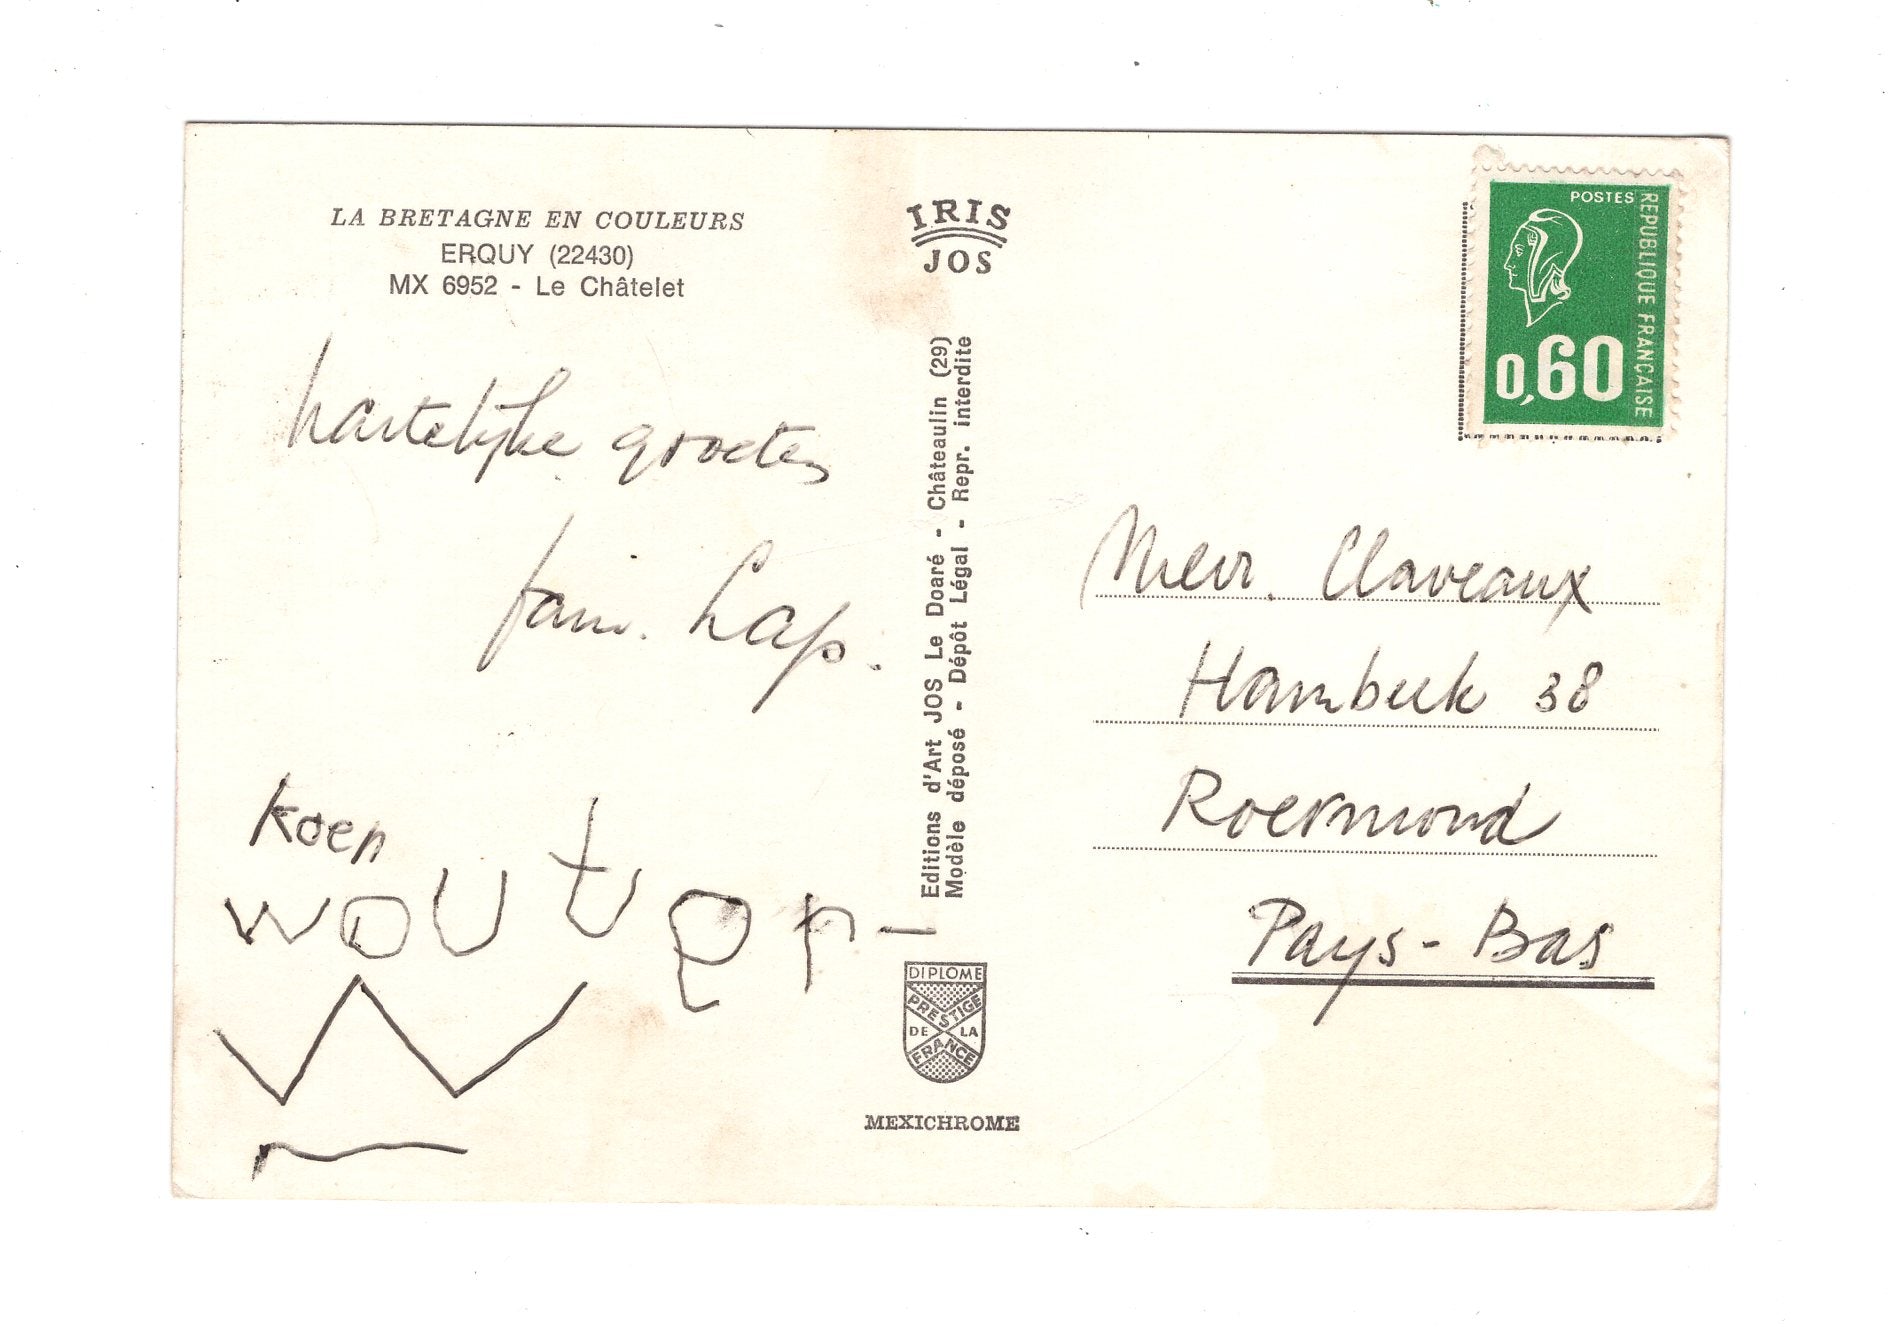 LA BRETAGNE EN COULEURS
ERQUY (22430)
MX 6952 - Le Châtelet
hartelijke groeten
fam. Lap.
koen
wouter
IRIS
JOS
Editions d'Art JOS Le Doaré - Châteaulin (29)
Modèle déposé - Dépôt Légal - Repr. interdite
DIPLOME
PRESTIGE
DE LA
FRANCE
MEXICHROME
POSTES
REPUBLIQUE FRANÇAISE
0,60
Mevr. Claveaux
Hambeek 38
Roermond
Pays-Bas